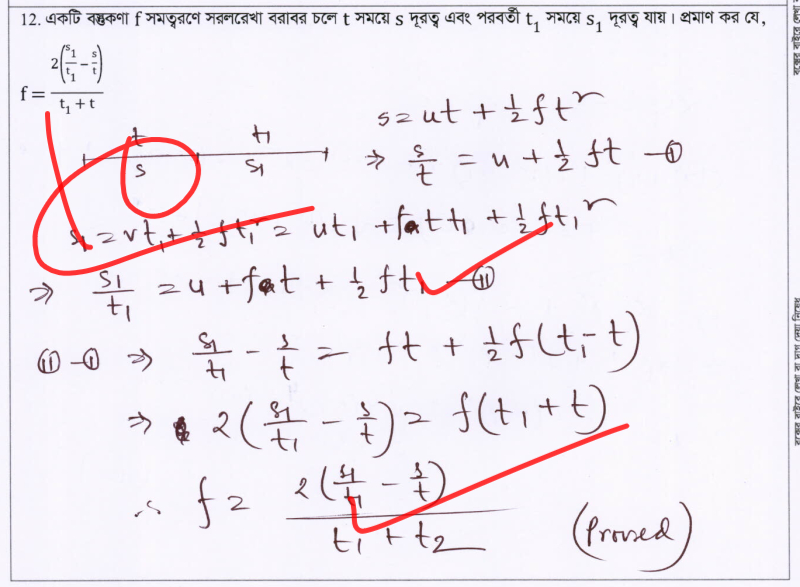 12. একটি বস্তুকণা f সমত্বরণে সরলরেখা বরাবর চলে t সময়ে s দূরত্ব এবং পরবর্তী t₁ সময়ে s₁ দূরত্ব যায়। প্রমাণ কর যে,
f = 2(s₁/t₁ - s/t) / (t₁ + t)
t t₁
s s₁
s = ut + ½ ft²
⇒ s/t = u + ½ ft —(i)
s₁ = vt₁ + ½ ft₁² = ut₁ + ftt₁ + ½ ft₁²
⇒ s₁/t₁ = u + ft + ½ ft₁ —(ii)
(ii) - (i) ⇒ s₁/t₁ - s/t = ft + ½ f(t₁ - t)
⇒ 2(s₁/t₁ - s/t) = f(t₁ + t)
∴ f = 2(s₁/t₁ - s/t) / (t₁ + t₂)
(Proved)